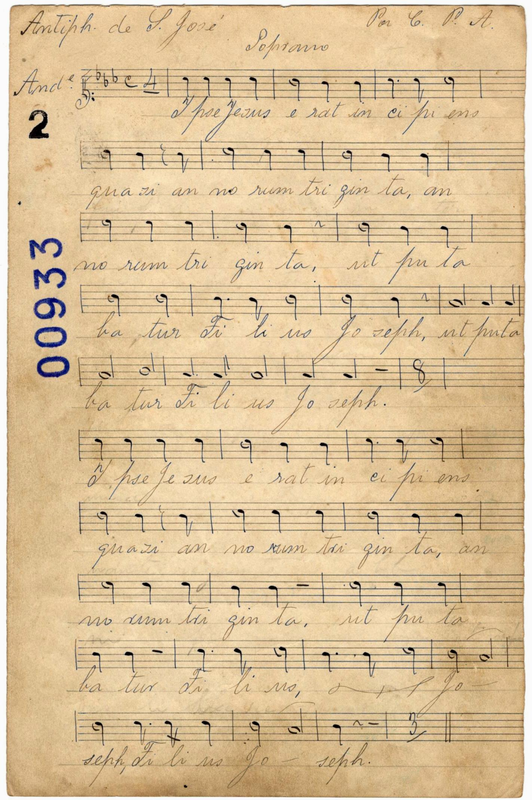 Antiph. de S. José Por C. P. A.
Soprano
And.e
2
Ipse Jezus e rat in ci pi ens
quazi an no rum tri gin ta, an
no rum tri gin ta, ut pu ta
00933
ba tur Fi li us Jo seph, ut puta
8
ba tur Fi li us Jo seph.
I pse Je zus e rat in ci pi ens
quazi an no rum tri gin ta, an
no rum tri gin ta, ut pu ta
ba tur Fi li us, Jo
3
seph, Fi li us Jo - seph.